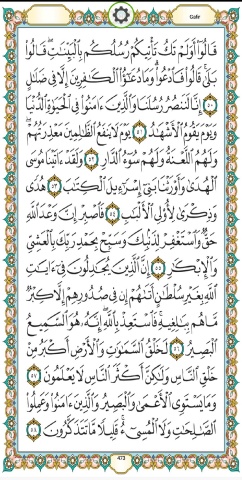 Gafir
قَالُوٓا۟ أَوَلَمْ تَكُ تَأْتِيكُمْ رُسُلُكُم بِٱلْبَيِّنَٰتِ ۖ قَالُوا۟
بَلَىٰ ۚ قَالُوا۟ فَٱدْعُوا۟ ۗ وَمَا دُعَٰٓؤُا۟ ٱلْكَٰفِرِينَ إِلَّا فِى ضَلَٰلٍ
٥٠ إِنَّا لَنَنصُرُ رُسُلَنَا وَٱلَّذِينَ ءَامَنُوا۟ فِى ٱلْحَيَوٰةِ ٱلدُّنْيَا
وَيَوْمَ يَقُومُ ٱلْأَشْهَٰدُ ٥١ يَوْمَ لَا يَنفَعُ ٱلظَّٰلِمِينَ مَعْذِرَتُهُمْ ۖ
وَلَهُمُ ٱللَّعْنَةُ وَلَهُمْ سُوٓءُ ٱلدَّارِ ٥٢ وَلَقَدْ ءَاتَيْنَا مُوسَى
ٱلْهُدَىٰ وَأَوْرَثْنَا بَنِىٓ إِسْرَٰٓءِيلَ ٱلْكِتَٰبَ ٥٣ هُدًى
وَذِكْرَىٰ لِأُو۟لِى ٱلْأَلْبَٰبِ ٥٤ فَٱصْبِرْ إِنَّ وَعْدَ ٱللَّهِ
حَقٌّ وَٱسْتَغْفِرْ لِذَنۢبِكَ وَسَبِّحْ بِحَمْدِ رَبِّكَ بِٱلْعَشِىِّ
وَٱلْإِبْكَٰرِ ٥٥ إِنَّ ٱلَّذِينَ يُجَٰدِلُونَ فِىٓ ءَايَٰتِ
ٱللَّهِ بِغَيْرِ سُلْطَٰنٍ أَتَىٰهُمْ ۙ إِن فِى صُدُورِهِمْ إِلَّا كِبْرٌ
مَّا هُم بِبَٰلِغِيهِ ۚ فَٱسْتَعِذْ بِٱللَّهِ ۖ إِنَّهُۥ هُوَ ٱلسَّمِيعُ
ٱلْبَصِيرُ ٥٦ لَخَلْقُ ٱلسَّمَٰوَٰتِ وَٱلْأَرْضِ أَكْبَرُ مِنْ
خَلْقِ ٱلنَّاسِ وَلَٰكِنَّ أَكْثَرَ ٱلنَّاسِ لَا يَعْلَمُونَ ٥٧
وَمَا يَسْتَوِى ٱلْأَعْمَىٰ وَٱلْبَصِيرُ وَٱلَّذِينَ ءَامَنُوا۟ وَعَمِلُوا۟
ٱلصَّٰلِحَٰتِ وَلَا ٱلْمُسِىٓءُ ۚ قَلِيلًا مَّا تَتَذَكَّرُونَ ٥٨
473